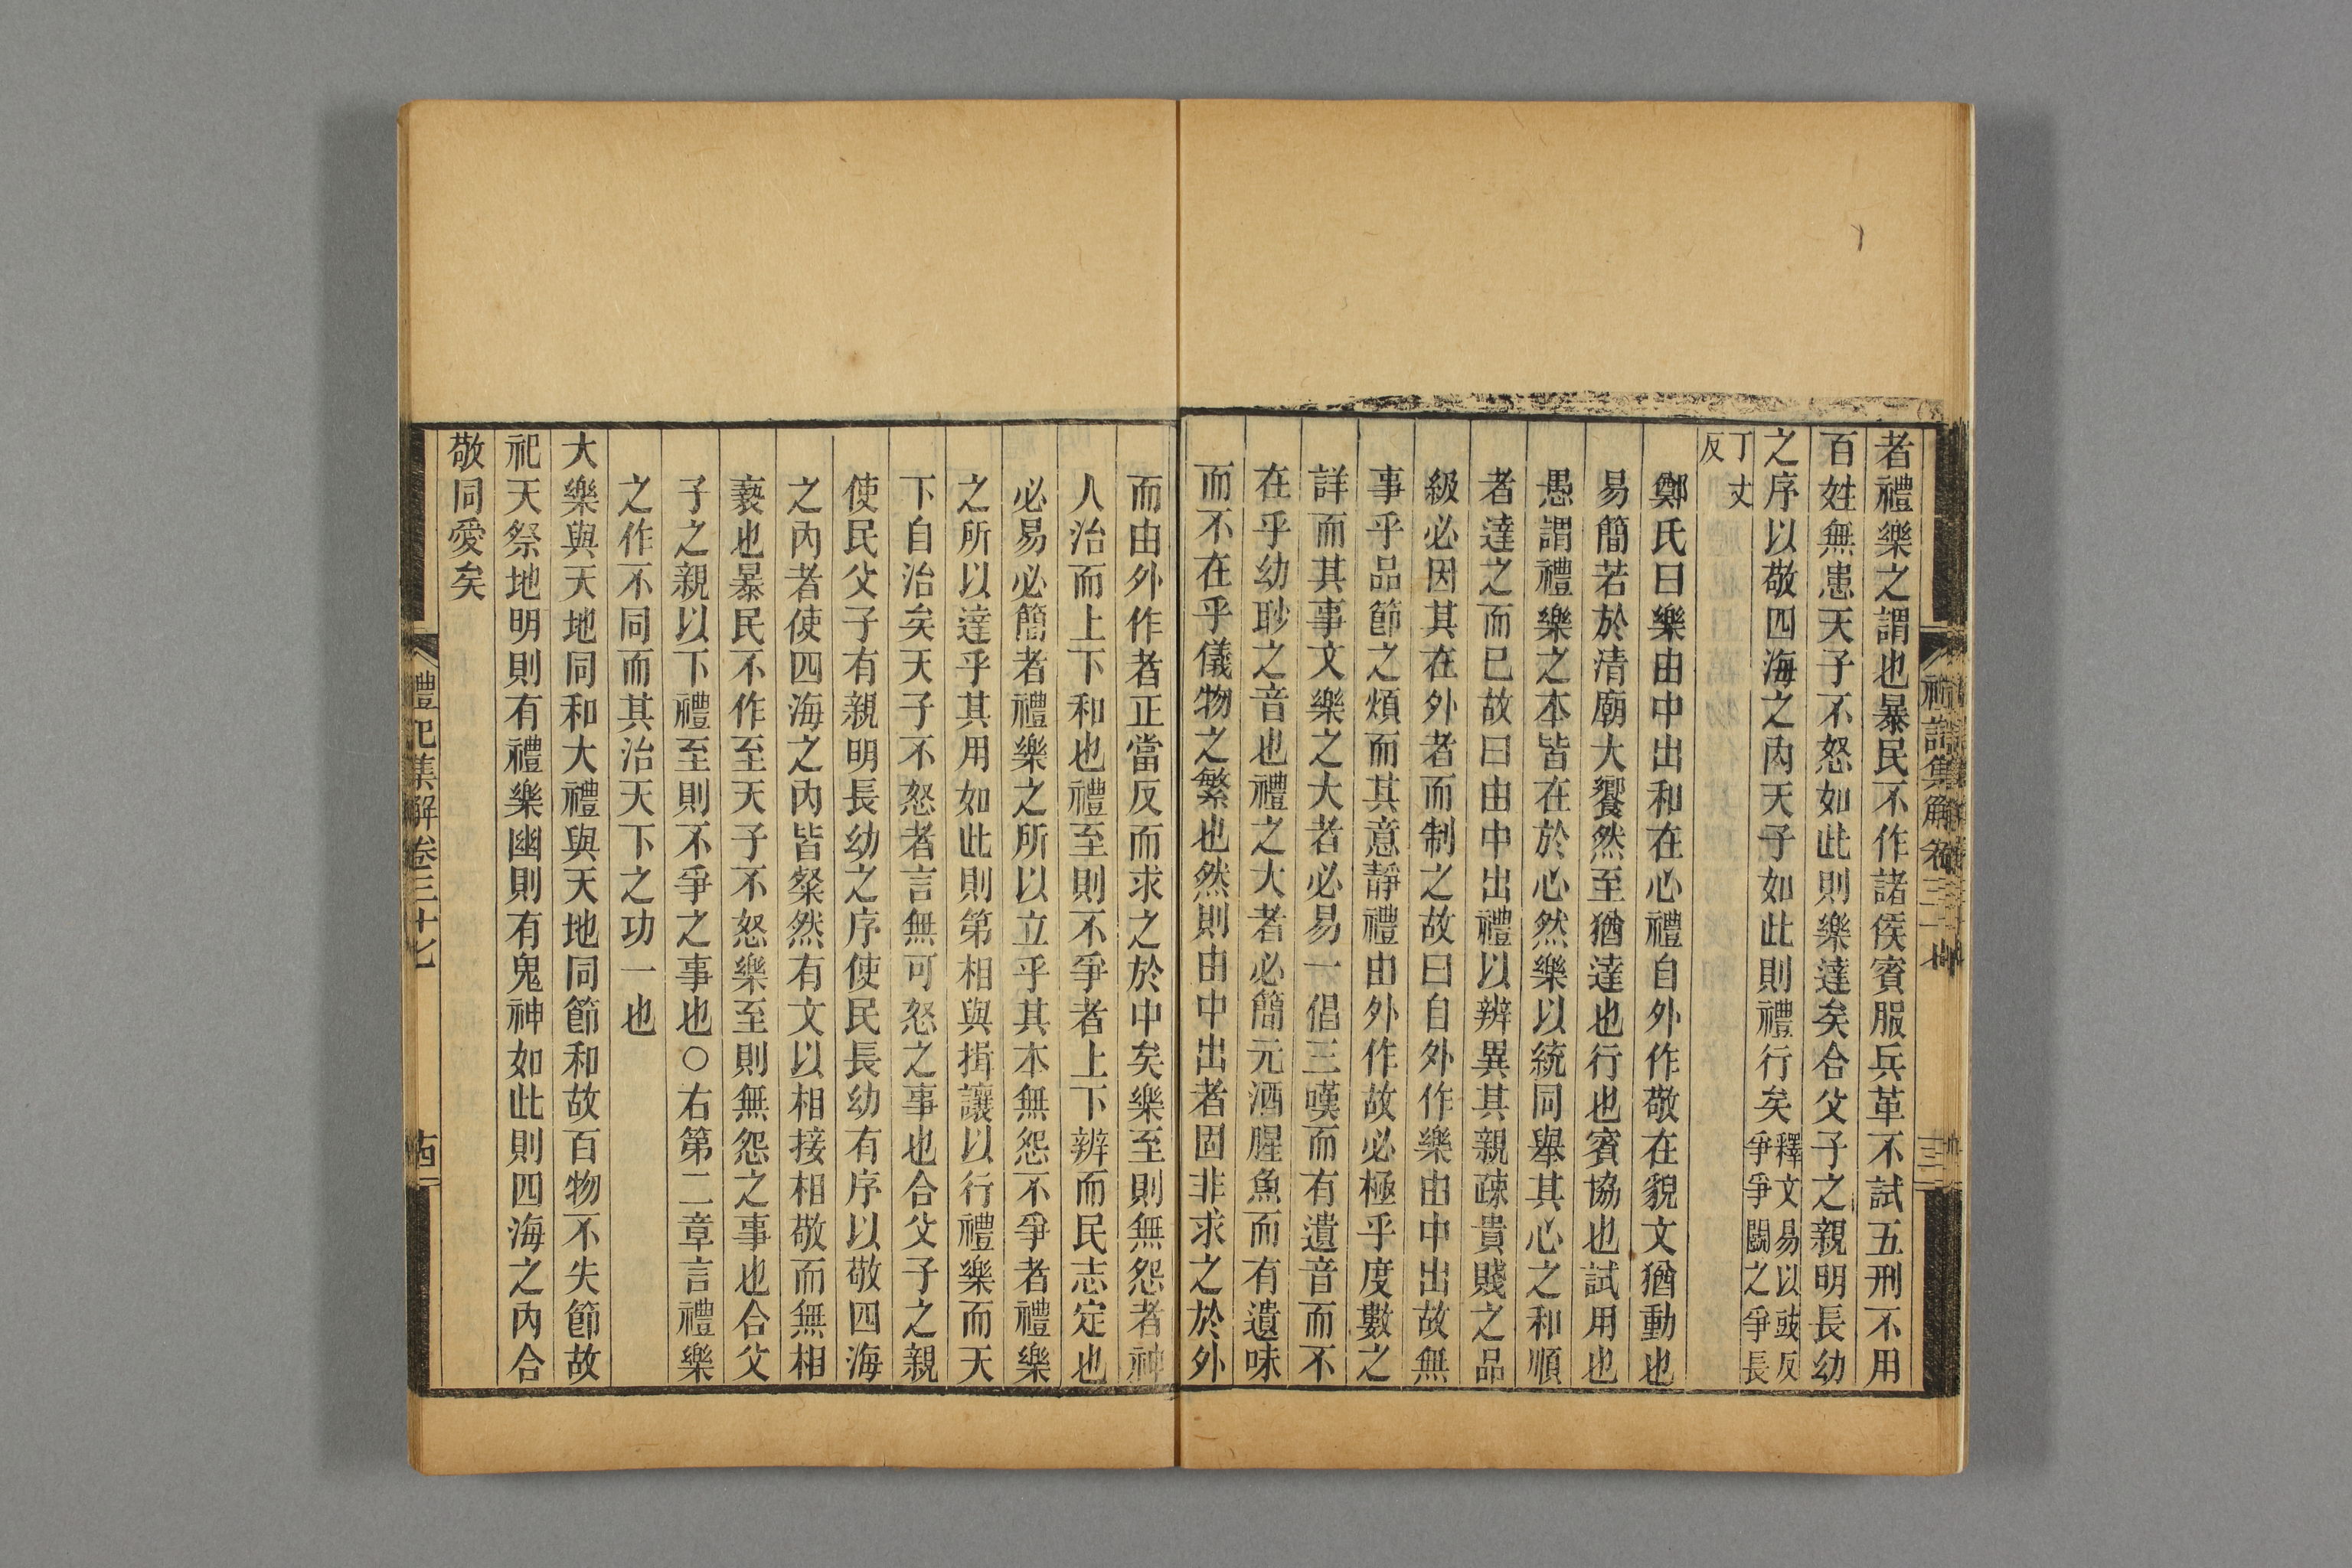 者禮樂之謂也暴民不作諸侯賓服兵革不試五刑不用
百姓無患天子不怒如此則樂達矣合父子之親明長幼
之序以敬四海之內天子如此則禮行矣釋文易以豉反爭爭鬭之爭長
丁丈反
鄭氏曰樂由中出和在心禮自外作敬在貌文猶動也
易簡若於清廟大饗然至猶達也行也賓協也試用也
愚謂禮樂之本皆在於心然樂以統同舉其心之和順
者達之而已故曰由中出禮以辨異其親疎貴賤之品
級必因其在外者而制之故曰自外作樂由中出故無
事乎品節之煩而其意靜禮由外作故必極乎度數之
詳而其事文樂之大者必易一倡三嘆而有遺音而不
在乎幼眇之音也禮之大者必簡元酒腥魚而有遺味
而不在乎儀物之繁也然則由中出者固非求之於外
而由外作者正當反而求之於中矣樂至則無怨者神
人治而上下和也禮至則不爭者上下辨而民志定也
必易必簡者禮樂之所以立乎其本無怨不爭者禮樂
之所以達乎其用如此則第相與揖讓以行禮樂而天
下自治矣天子不怒者言無可怒之事也合父子之親
使民父子有親明長幼之序使民長幼有序以敬四海
之內者使四海之內皆粲然有文以相接相敬而無相
褻也暴民不作至天子不怒樂至則無怨之事也合父
子之親以下禮至則不爭之事也○右第二章言禮樂
之作不同而其治天下之功一也
大樂與天地同和大禮與天地同節和故百物不失節故
祀天祭地明則有禮樂幽則有鬼神如此則四海之內合
敬同愛矣
禮記集解卷三十七
古